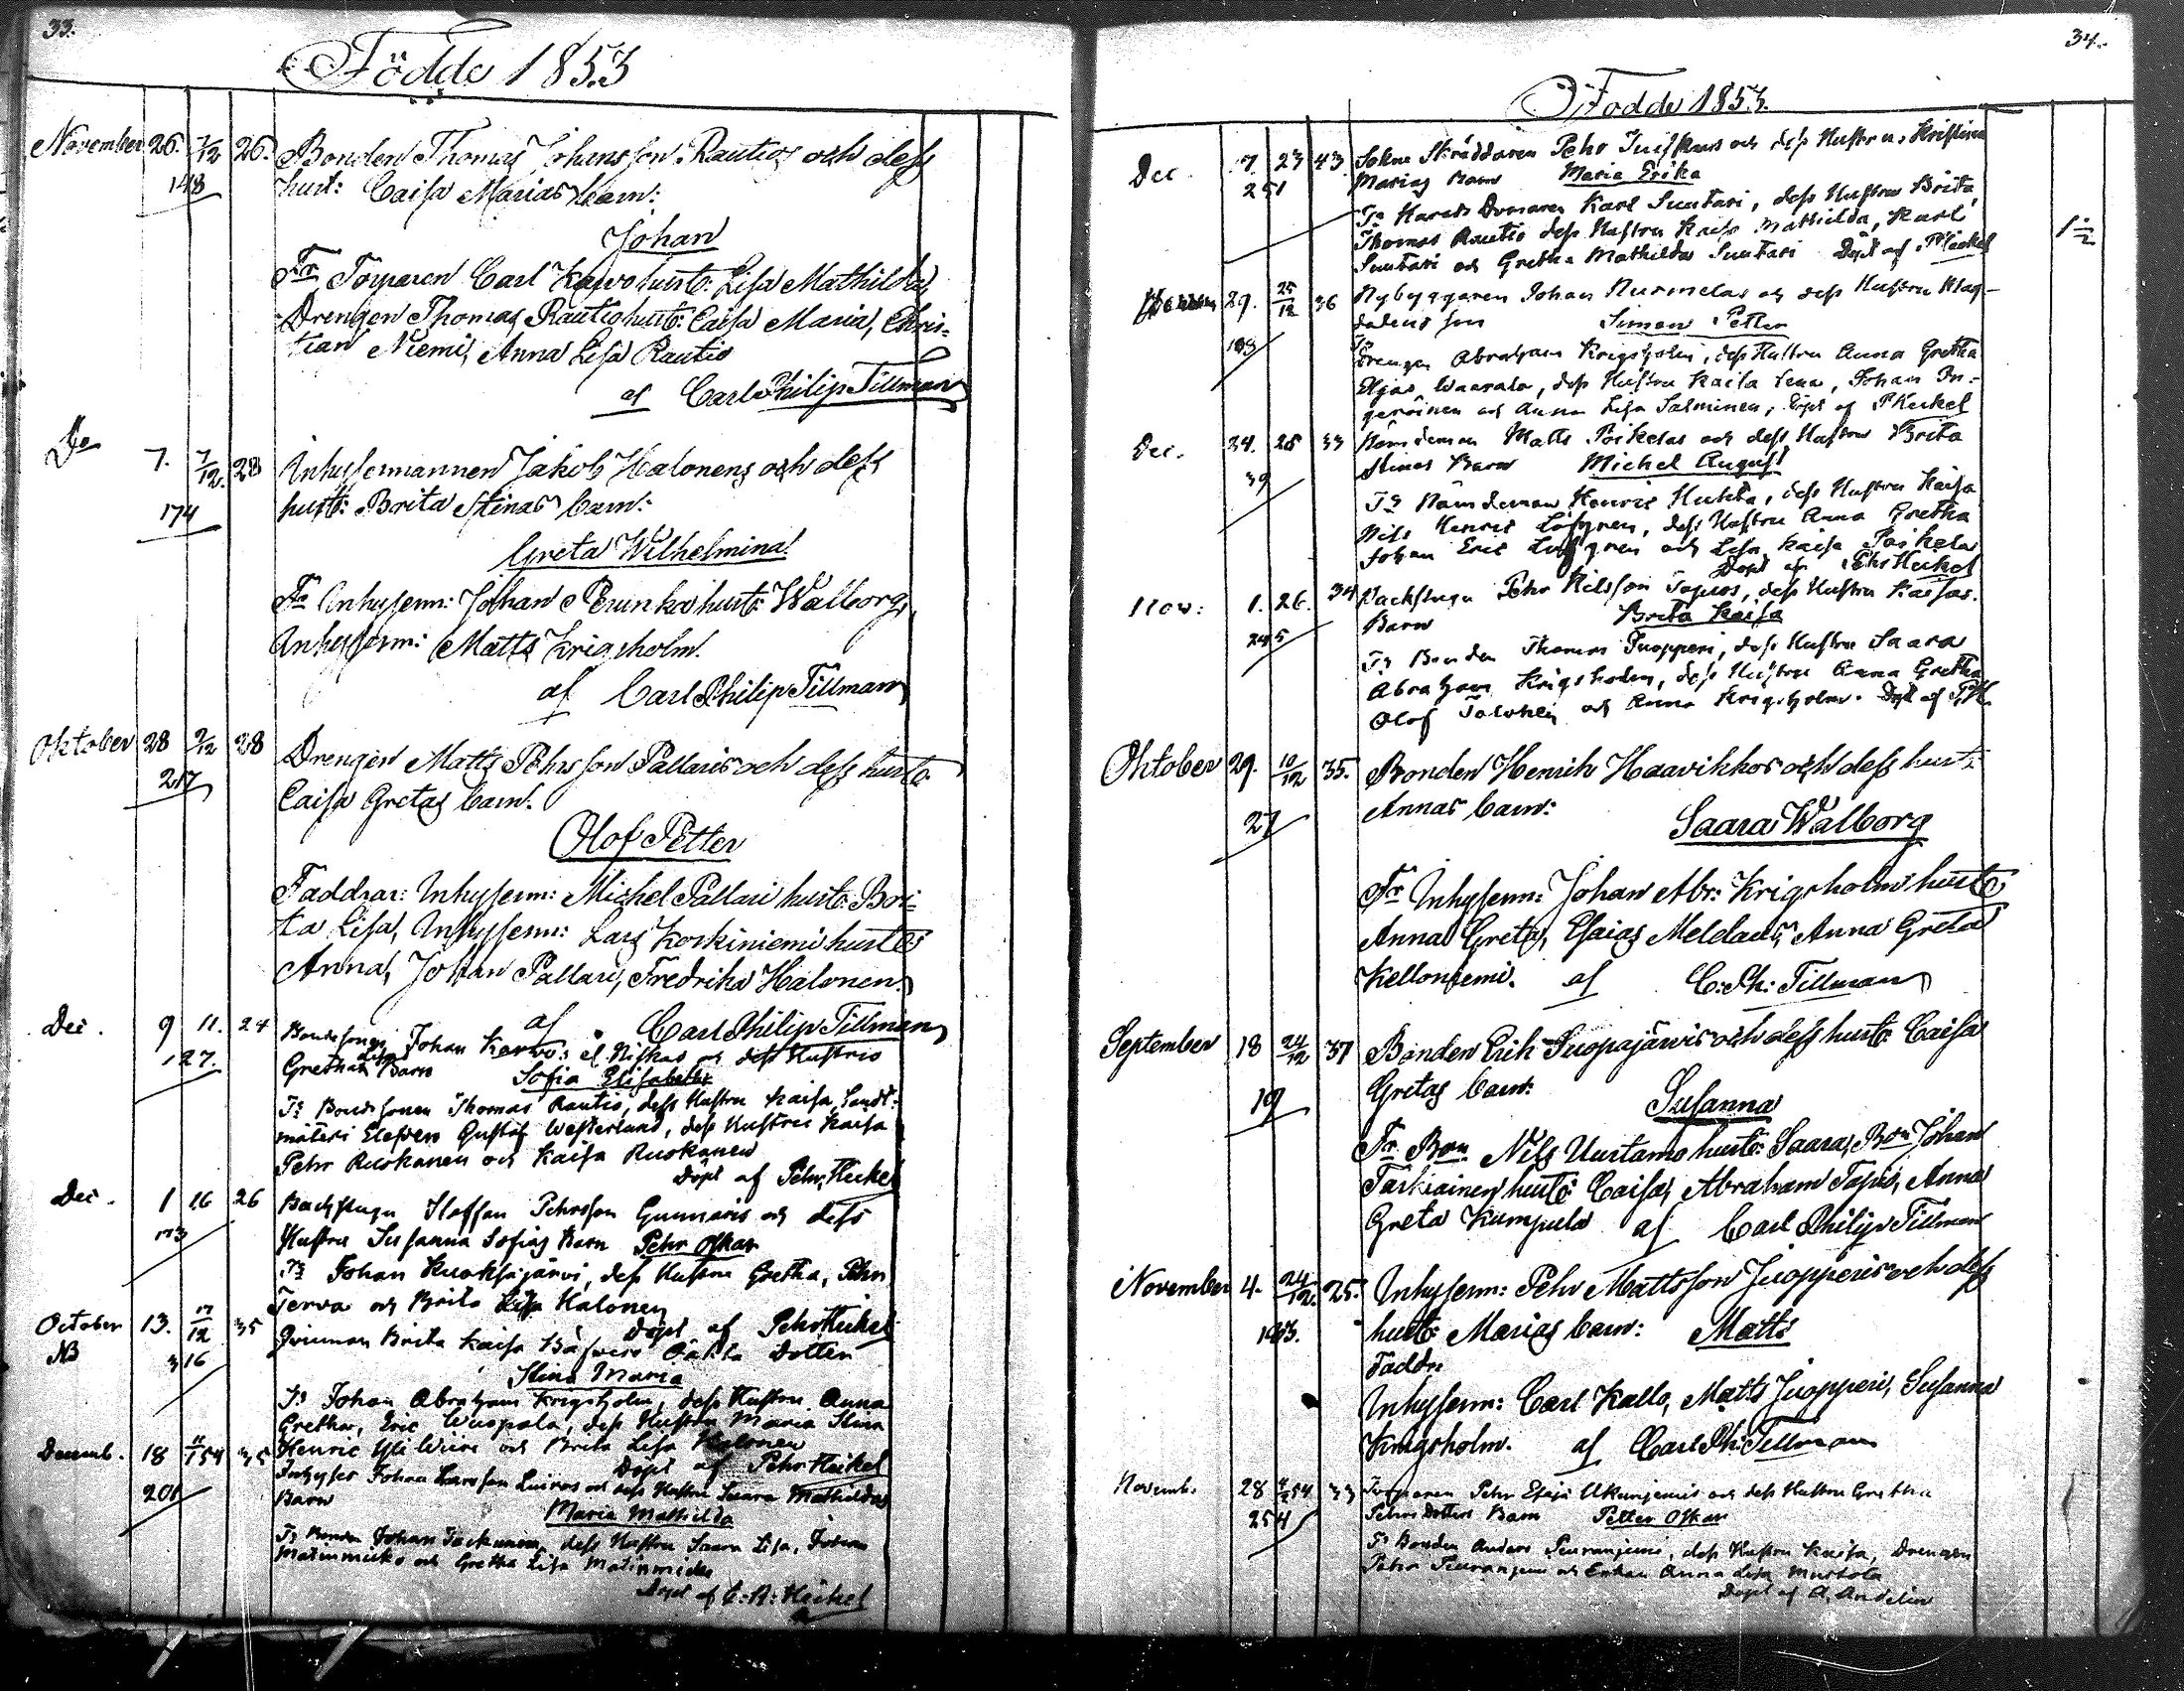 33.
Födde 1853
November 26. 7/12 26. Bonden Thomas Johansson Rautios och dess
148 hust: Caisa Marias barn:
Johan
Fr Torparen Carl Karvo hust: Lisa Mathilda,
Drengen Thomas Rautio hust: Caisa Maria, Chris-
tian Niemi, Anna Lisa Rautio
af Carl Philip Tillman
De 7. 7/12. 28 Inhysesmannen Jakob Halonens och dess
174 hust: Brita Stinas barn:
Greta Wilhelmina
Fr Inhysesm: Johan Perunka hust: Walborg,
Inhysesm: Matts Krigsholm.
af Carl Philip Tillman
Oktober 28 9/12 28 Drengen Matts Pehrsson Pallaris och dess hust:
217 Caisa Gretas barn.
Olof Petter
Faddrar: Inhysesm: Michel Pallari hust: Bri-
ta Lisa, Inhysesm: Lars Koskiniemi hust:
Anna, Johan Pallari, Fredrika Halonen.
af Carl Philip Tillman
Dec. 9 11. 24 Bondesonen Johan Karvo: el Niskas och dess Hustrus
127. Gretha Lisas Barn Sofia Elisabeth
Fr Bondesonen Thomas Rautio, dess Hustru Kaisa, Landt-
mäteri Eleven Gustaf Westerlund, dess Hustru Kaisa
Pehr Ruokanen och Kaisa Ruokanen
Döpt af Pehr Heikel
Dec. 1 16 26 Backstugu Staffan Pehrsson Gunnaris och dess
173 Hustru Susanna Sofias Barn Pehr Oskar
Fr Johan Kuoksajärvi, dess Hustru Gretha, Pehr
Terva och Brita Lisa Halonen
Döpt af Pehr Heikel
October 13. 17/12 35 Qvinnan Brita Kaisa Oäkta Dotter
NB 316
Stina Maria
Fr Johan Abraham Krigsholm, dess Hustru Anna
Gretha, Eric Wuopala, dess Hustru Maria Stina
Henric Yli Wiiri och Brita Lisa Halonen
Döpt af Pehr Heikel
Decemb. 18 11/1 54 35 Inhyses Johan Larsson Luiros och dess Hustru Saara Mathildas
201 Barn
Maria Mathilda
Fr Bonden Johan Tackinen, dess Hustru Saara Lisa, Johan
Matinmikko och Gretha Lisa Matinmikko
Döpt af C: A: Heikel
34.
Födde 1853.
Dec. 7. 23 43. Sokne Skräddaren Pehr Juuskus och dess Hustrus Kristina
251 Marias Barn Maria Erika
Fr Härads Domaren Karl Suutari, dess Hustru Brita,
Thomas Rautio dess Hustru Kaisa Mathilda, Karl
Suutari och Gretha Mathilda Suutari Döpt af P Heikel
29. 25/12 36 Nybyggaren Johan Nurmelas och dess Hustru Mag-
dalenas son Simon Petter
Fr
Drengen Abraham Krigsholm, dess Hustru Anna Gretha
Elias Waarala, dess Hustru Kaisa Lena, Johan In-
geröinen och Anna Lisa Salminen, Döpt af P Heikel
Dec. 24. 25 33 Nämdeman Matts Poikelas och dess Hustru Brita
39 Stinas Barn Michel August
Fr Nämdeman Henric Huhta, dess Hustru Kaisa
Nils Henric Löfgren, dess Hustru Anna Gretha
Johan Eric Löfgren och Lisa Kaisa Poikela
Döpt af Pehr Heikel
Nov: 1. 26. 34 Backstugu Pehr Nilsson Tapios, dess Hustru Kaisas.
245 Barn Brita Kaisa
Fr Bonden Thomas Juopperi, dess Hustru Saara
Abraham Krigsholm, dess Hustru Anna Gretha
Olof Talvhen och Anna Krigsholm. Döpt af P.H.
Oktober 29. 10/12 35. Bonden Henrik Haavikkos och dess hust:
27 Annas barn:
Saara Walborg
Fr Inhysesm: Johan Abr: Krigsholm hust:
Anna Greta, Esaias Meldaus, Anna Greta
Kelloniemi. af C: Ph: Tillman
September 18 24/12 37 Bonden Erik Suopajärvis och dess hust: Caisa
19 Gretas barn:
Susanna
Fr Bon Nils Uustamo hust: Saara, Bon Johan
Tarkiainen hust: Caisa, Abraham Tapio, Anna
Greta Kumpula af Carl Philip Tillman
November 4. 24/12. 25. Inhysesm: Pehr Mattsson Juopperis och dess
hust: Marias barn: Matts
Faddr:
Inhysesm: Carl Kallo, Matts Juopperi, Susanna
Krigsholm. af Carl Ph: Tillman
Novemb. 28 54 33 Torparen Pehr Esaja Alkunjemis och dess Hustru Gretha
254 Pehrs Dotters Barn Petter Oskar
Fr Bonden Anders Peuranjemi, dess Hustru Kaisa, Drengen
Pehr Peuranjemi och Enkan Anna Lisa Mustola
Döpt af A. Andelin
1/2